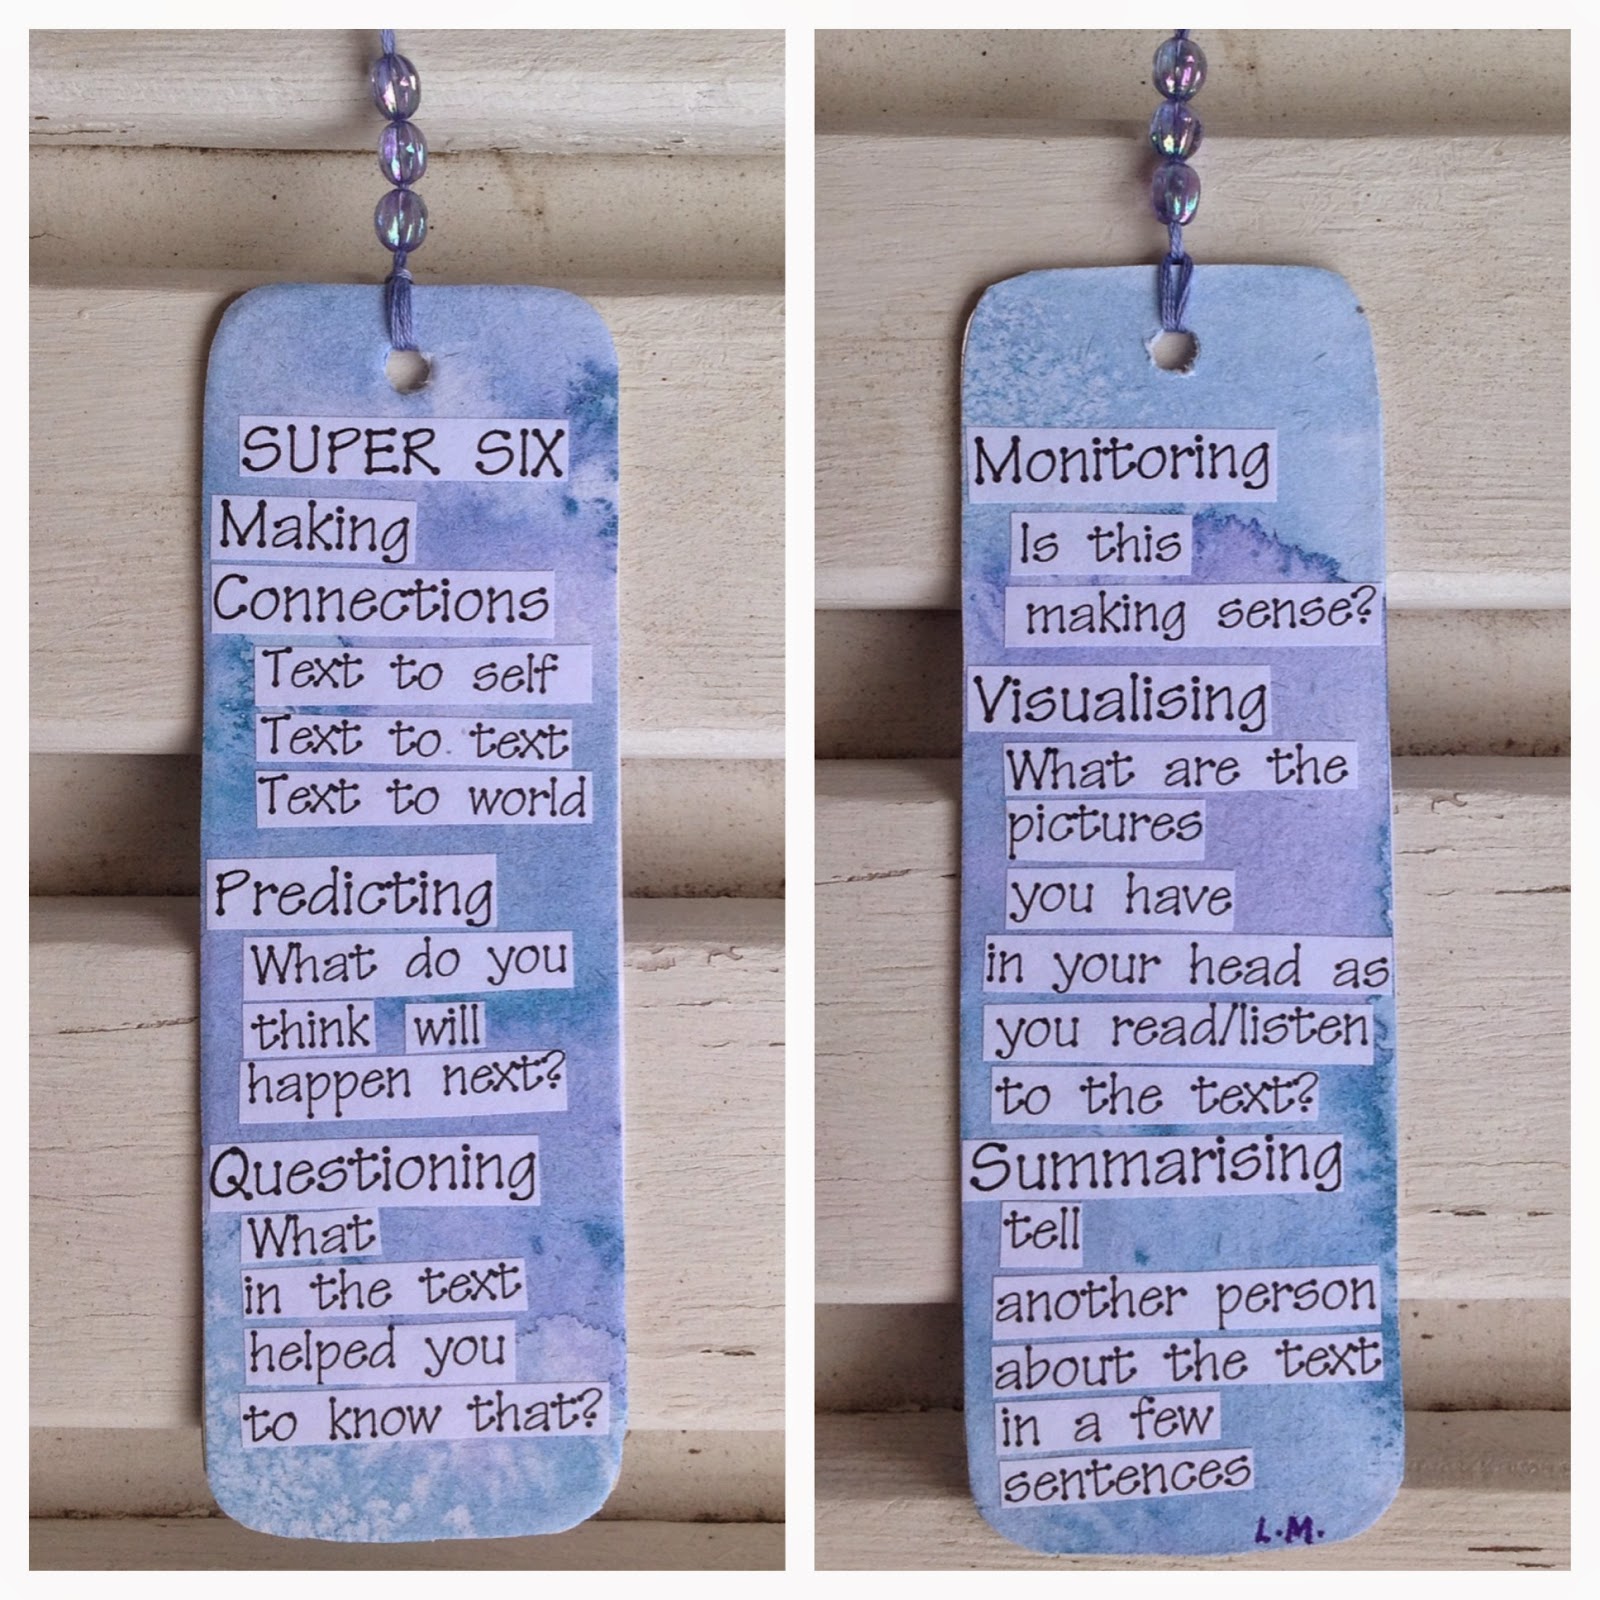 SUPER SIX
Making
Connections
Text to self
Text to text
Text to world
Predicting
What do you
think will
happen next?
Questioning
What
in the text
helped you
to know that?
Monitoring
Is this
making sense?
Visualising
What are the
pictures
you have
in your head as
you read/listen
to the text?
Summarising
tell
another person
about the text
in a few
sentences
L.M.